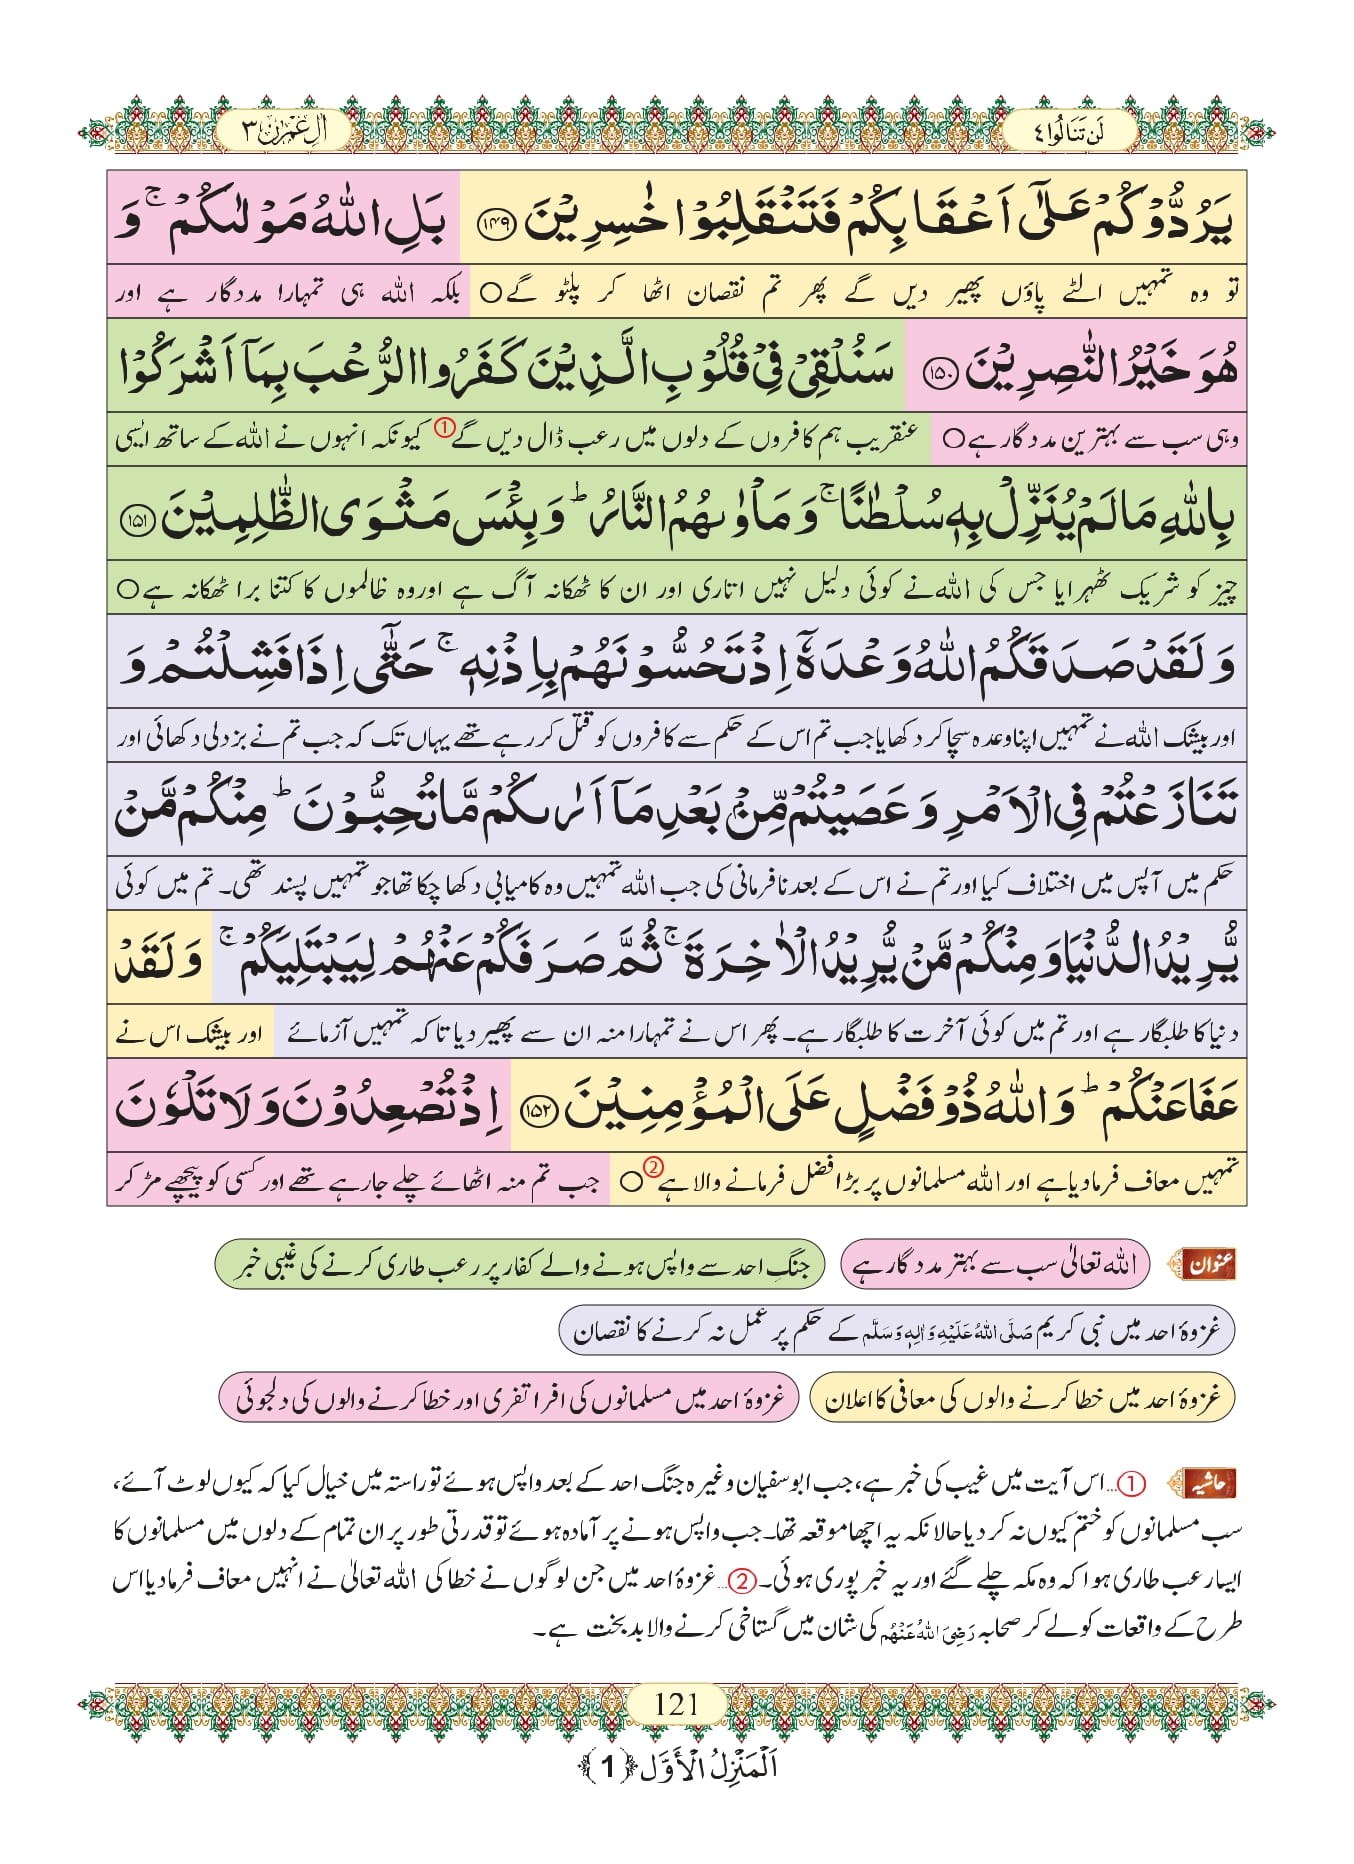 لَنْ تَنَالُوا ٤
اٰلِ عِمْرٰن ٣
يَرُدُّوْكُمْ عَلٰۤى اَعْقَابِكُمْ فَتَنْقَلِبُوْا خٰسِرِيْنَ ﴿۱۴۹﴾ بَلِ اللّٰهُ مَوْلٰىكُمْ ۚ وَ
تو وہ تمہیں الٹے پاؤں پھیر دیں گے پھر تم نقصان اٹھا کر پلٹو گے○ بلکہ اللہ ہی تمہارا مددگار ہے اور
هُوَ خَيْرُ النّٰصِرِيْنَ ﴿۱۵۰﴾ سَنُلْقِيْ فِيْ قُلُوْبِ الَّذِيْنَ كَفَرُوا الرُّعْبَ بِمَاۤ اَشْرَكُوْا
وہی سب سے بہترین مددگار ہے○ عنقریب ہم کافروں کے دلوں میں رعب ڈال دیں گے① کیونکہ انہوں نے اللہ کے ساتھ ایسی
بِاللّٰهِ مَا لَمْ يُنَزِّلْ بِهٖ سُلْطٰنًا ۚ وَ مَاْوٰىهُمُ النَّارُ ؕ وَ بِئْسَ مَثْوَى الظّٰلِمِيْنَ ﴿۱۵۱﴾
چیز کو شریک ٹھہرایا جس کی اللہ نے کوئی دلیل نہیں اتاری اور ان کا ٹھکانہ آگ ہے اور وہ ظالموں کا کتنا برا ٹھکانہ ہے○
وَ لَقَدْ صَدَقَكُمُ اللّٰهُ وَعْدَهٗۤ اِذْ تَحُسُّوْنَهُمْ بِاِذْنِهٖ ۚ حَتّٰۤى اِذَا فَشِلْتُمْ وَ
اور بیشک اللہ نے تمہیں اپنا وعدہ سچا کر دکھایا جب تم اس کے حکم سے کافروں کو قتل کر رہے تھے یہاں تک کہ جب تم نے بزدلی دکھائی اور
تَنَازَعْتُمْ فِي الْاَمْرِ وَ عَصَيْتُمْ مِّنْۢ بَعْدِ مَاۤ اَرٰىكُمْ مَّا تُحِبُّوْنَ ؕ مِنْكُمْ مَّنْ
حکم میں آپس میں اختلاف کیا اور تم نے اس کے بعد نافرمانی کی جب اللہ تمہیں وہ کامیابی دکھا چکا تھا جو تمہیں پسند تھی۔ تم میں کوئی
يُّرِيْدُ الدُّنْيَا وَ مِنْكُمْ مَّنْ يُّرِيْدُ الْاٰخِرَةَ ۚ ثُمَّ صَرَفَكُمْ عَنْهُمْ لِيَبْتَلِيَكُمْ ۚ وَ لَقَدْ
دنیا کا طلبگار ہے اور تم میں کوئی آخرت کا طلبگار ہے۔ پھر اس نے تمہارا منہ ان سے پھیر دیا تاکہ تمہیں آزمائے اور بیشک اس نے
عَفَا عَنْكُمْ ؕ وَ اللّٰهُ ذُوْ فَضْلٍ عَلَى الْمُؤْمِنِيْنَ ﴿۱۵۲﴾ اِذْ تُصْعِدُوْنَ وَ لَا تَلْوٗنَ
تمہیں معاف فرما دیا ہے اور اللہ مسلمانوں پر بڑا فضل فرمانے والا ہے②○ جب تم منہ اٹھائے چلے جا رہے تھے اور کسی کو پیچھے مڑ کر
عنوان اللہ تعالیٰ سب سے بہتر مددگار ہے جنگِ احد سے واپس ہونے والے کفار پر رعب طاری کرنے کی غیبی خبر
غزوۂ احد میں نبی کریم صَلَّى اللهُ عَلَيْهِ وَاٰلِهٖ وَسَلَّم کے حکم پر عمل نہ کرنے کا نقصان
غزوۂ احد میں خطا کرنے والوں کی معافی کا اعلان غزوۂ احد میں مسلمانوں کی افراتفری اور خطا کرنے والوں کی دلجوئی
حاشیہ ①…اس آیت میں غیب کی خبر ہے، جب ابو سفیان وغیرہ جنگ احد کے بعد واپس ہوئے تو راستہ میں خیال کیا کہ کیوں لوٹ آئے،
سب مسلمانوں کو ختم کیوں نہ کر دیا حالانکہ یہ اچھا موقعہ تھا۔ جب واپس ہونے پر آمادہ ہوئے تو قدرتی طور پر ان تمام کے دلوں میں مسلمانوں کا
ایسا رعب طاری ہوا کہ وہ مکہ چلے گئے اور یہ خبر پوری ہوئی۔ ②…غزوۂ احد میں جن لوگوں نے خطا کی اللہ تعالیٰ نے انہیں معاف فرما دیا اس
طرح کے واقعات کو لے کر صحابہ رَضِيَ اللهُ عَنْهُم کی شان میں گستاخی کرنے والا بدبخت ہے۔
121
اَلْمَنْزِلُ الْأَوَّل ﴿1﴾